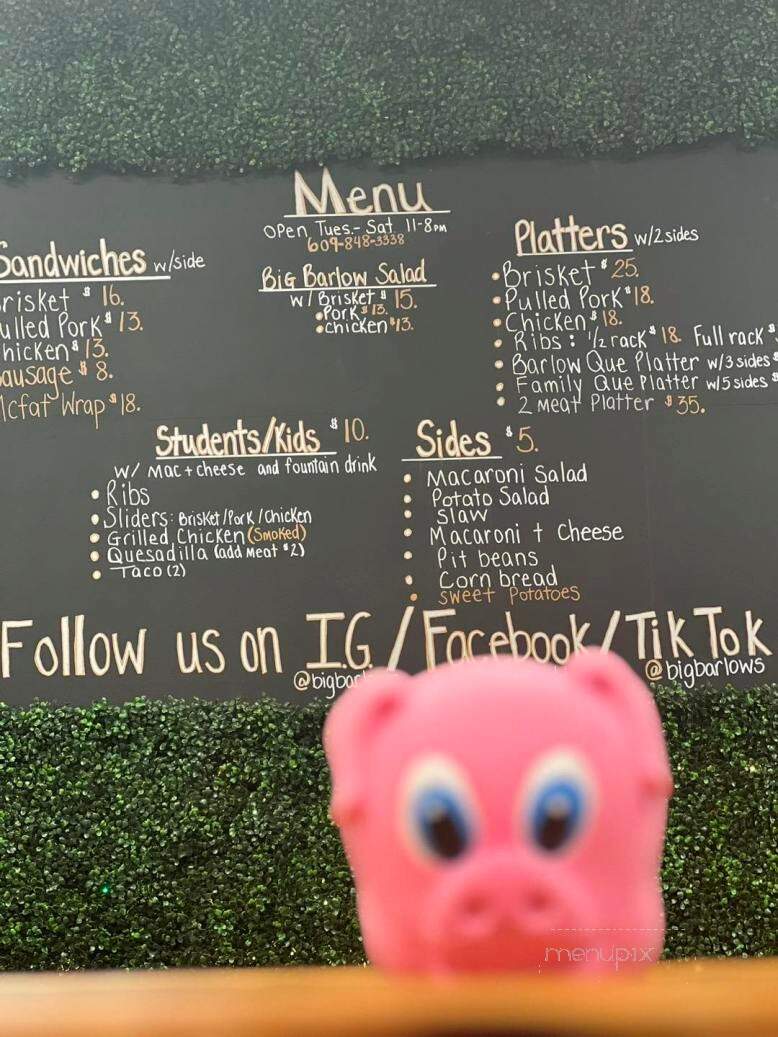 Menu
Open Tues.- Sat. 11-8pm
609-848-3338
Sandwiches w/side
risket $16.
ulled Pork $13.
hicken $13.
ausage $8.
cfat Wrap $18.
Big Barlow Salad
w/ Brisket $15.
•Pork $13.
•Chicken $13.
Platters w/2sides
•Brisket $25.
•Pulled Pork $18.
•Chicken $18.
•Ribs: 1/2 rack $18. Full rack $
•Barlow Que Platter w/3 sides $
•Family Que Platter w/5 sides $
•2 Meat Platter $35.
Students/Kids $10.
w/ Mac+cheese and fountain drink
•Ribs
•Sliders: Brisket/Pork/Chicken
•Grilled Chicken (Smoked)
•Quesadilla (add Meat $2)
•Taco (2)
Sides $5.
•Macaroni Salad
•Potato Salad
•Slaw
•Macaroni + Cheese
•Pit beans
•Corn bread
•Sweet Potatoes
Follow us on I.G./Facebook/TikTok
@bigbar @bigbarlows
menupix